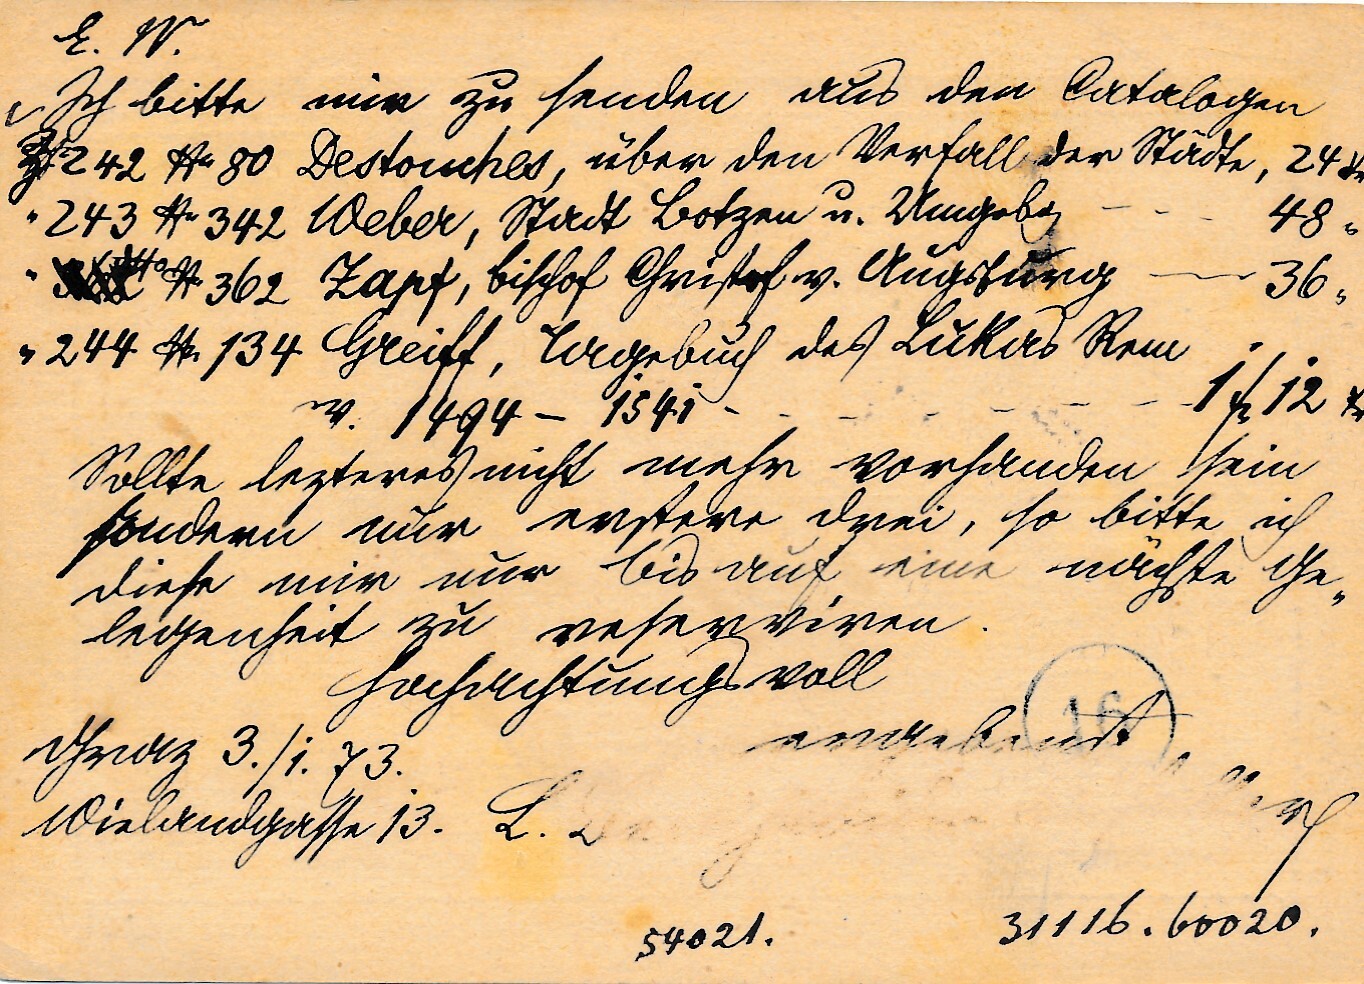 E. W.
Ich bitte mir zu senden aus den Catalogen
242 No 80 Destouches, über den Verfall der Städte, 24 kr
" 243 No 342 Weber, Stadt Botzen u. Umgebg - - - 48 "
" dtto No 362 Zapf, bischof Christof v. Augsburg — 36 "
" 244 No. 134 Greiff, Tagebuch des Lukas Rem
v. 1494 – 1541 - - - - - - 1 f 12 kr
Sollte lezteres nicht mehr vorhanden sein
sondern nur erstere drei, so bitte ich
diese mir nur bis auf eine nächste Ge-
legenheit zu reserviren.
Hochachtungsvoll
16
ergebenst
Graz 3./1. 73.
Wielandgasse 13. L.
54021. 31116. 60020.